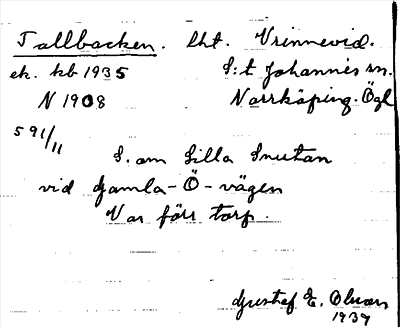 Tallbacken. Lht. Vrinnevid.
ek. kb 1935 S:t Johannes sn.
N 1908 Norrköping. Ögl
591/11
S. om Lilla Snutan
vid Gamla-Ö-vägen
Var förr torp.
Gustaf E. Olsson
1939